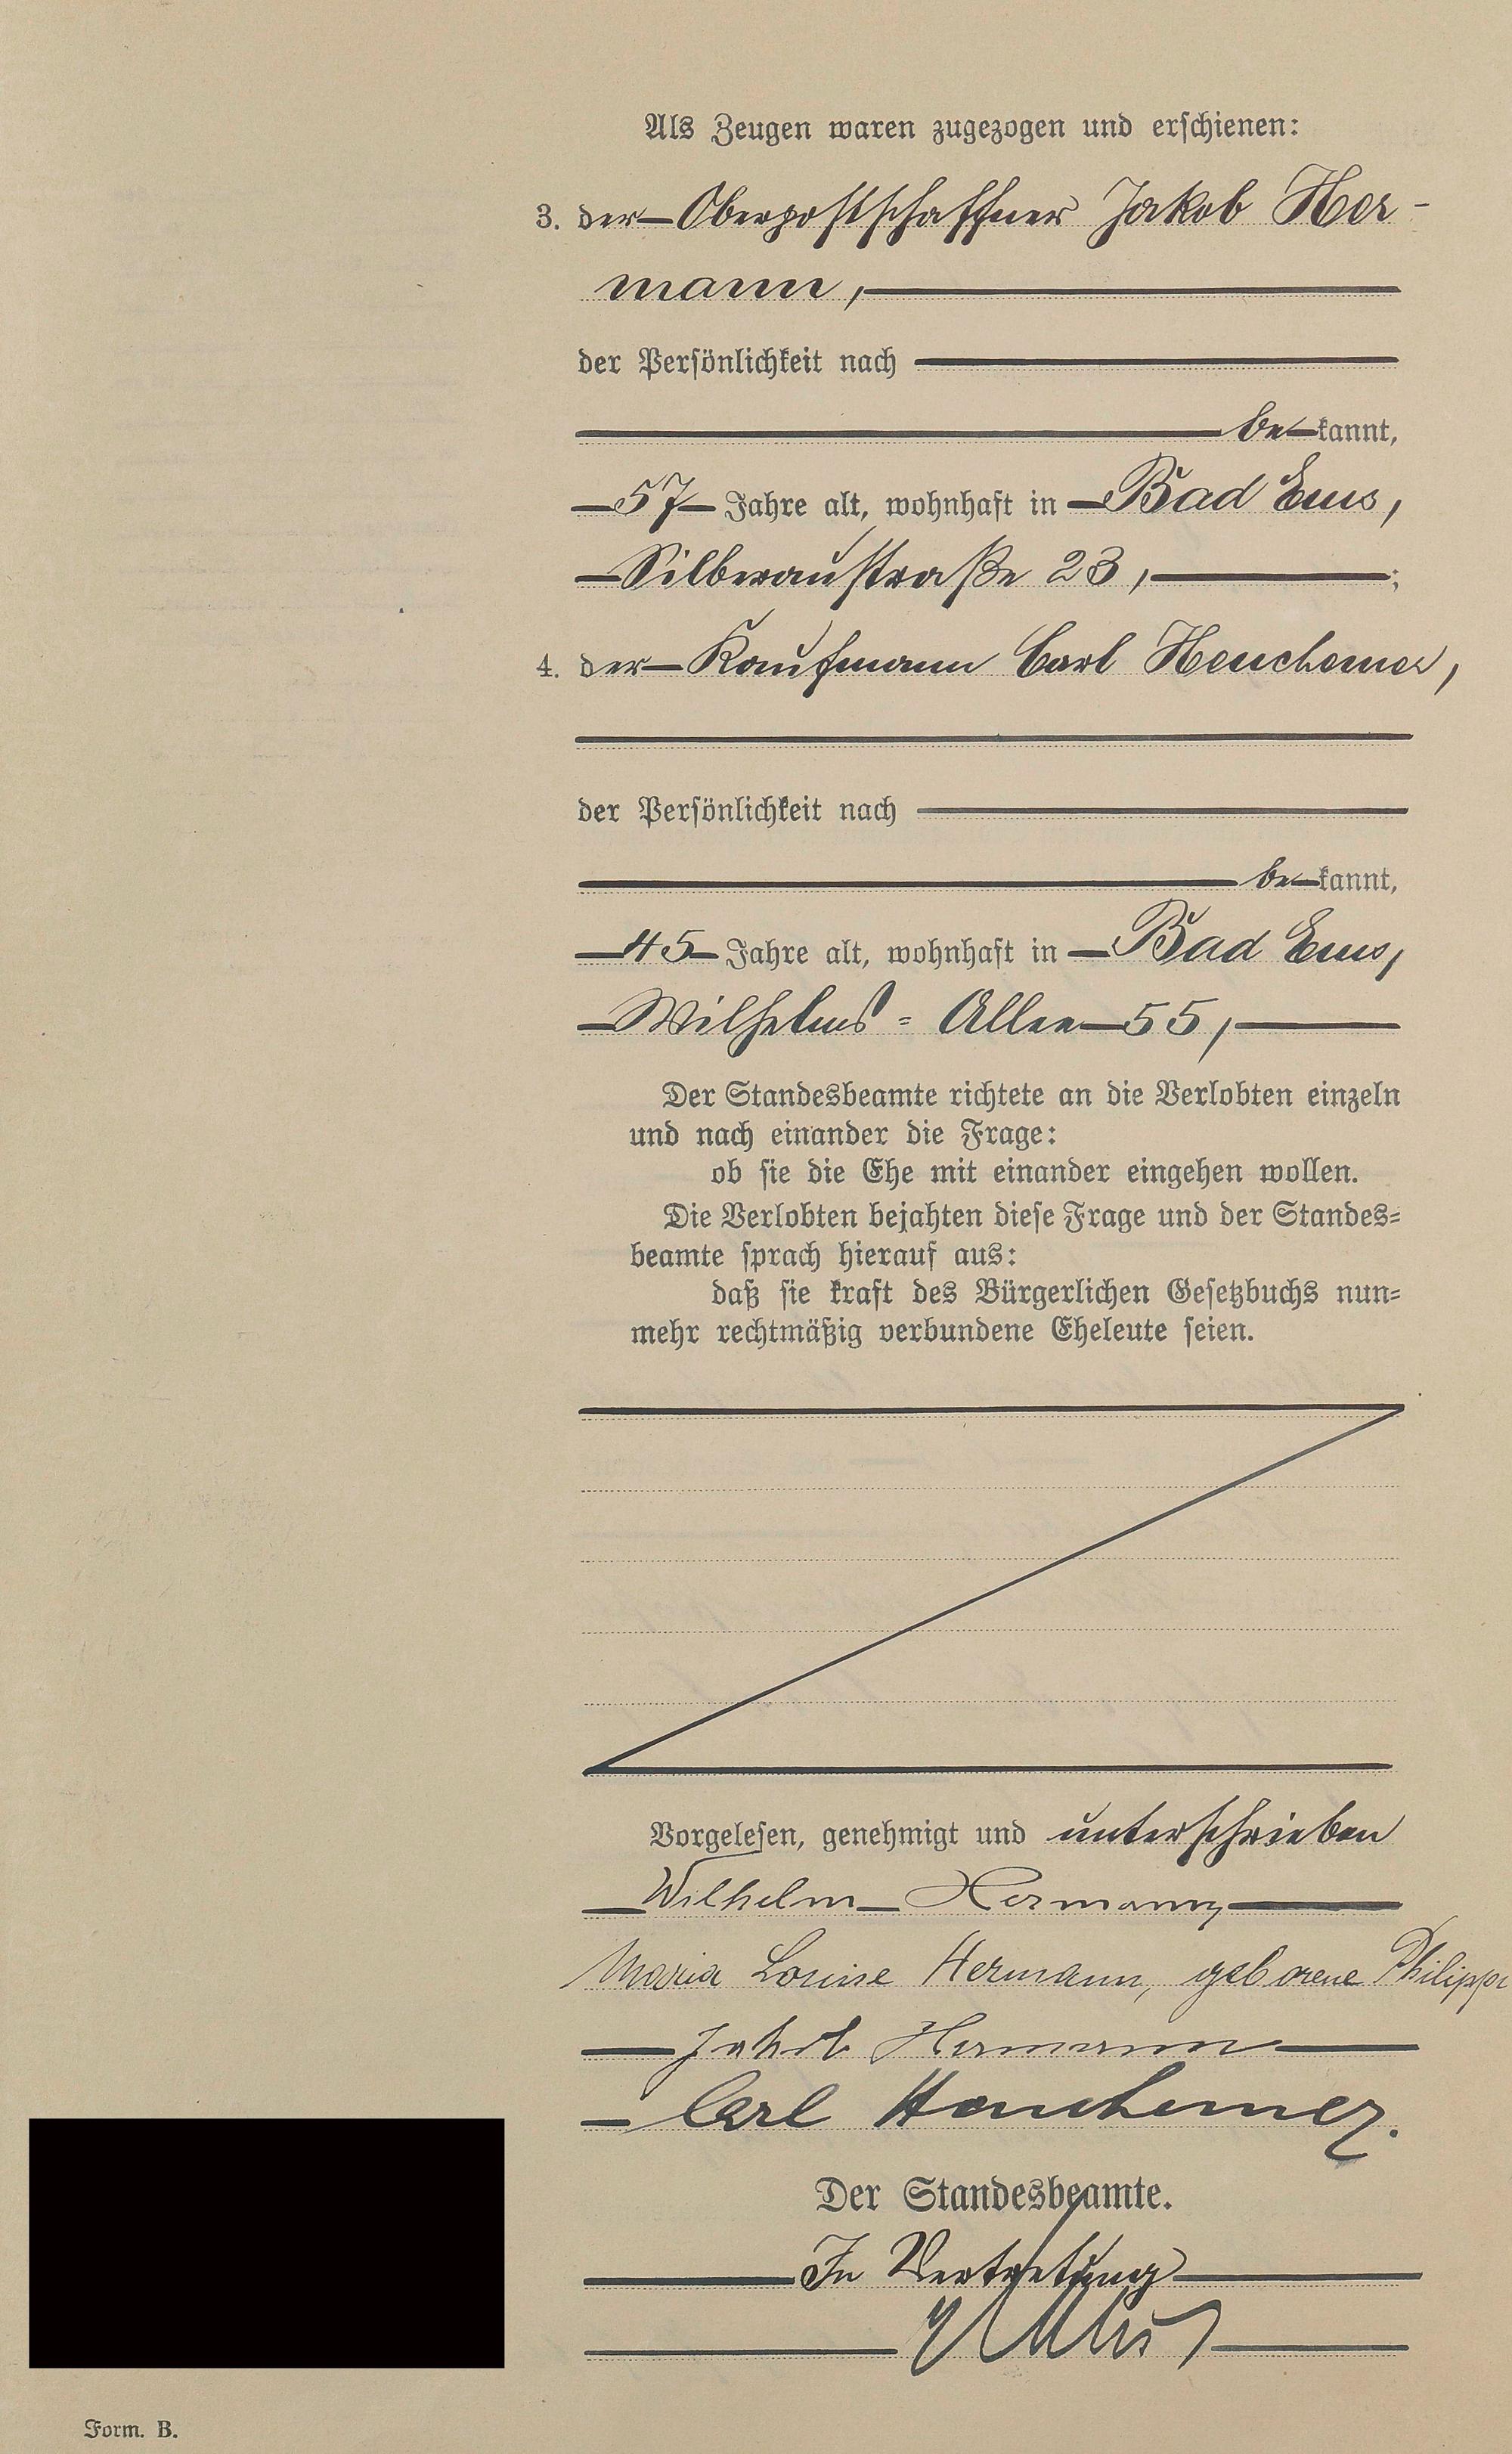 Als Zeugen waren zugezogen und erschienen:
3. der Oberpostschaffner Jakob Her-
mann,
der Persönlichkeit nach
be kannt,
57 Jahre alt, wohnhaft in Bad Ems,
Silberaustraße 23, ;
4. der Kaufmann Carl Heuchemer,
der Persönlichkeit nach
be kannt,
45 Jahre alt, wohnhaft in Bad Ems,
Wilhelms= Allee 55,
Der Standesbeamte richtete an die Verlobten einzeln
und nach einander die Frage:
ob sie die Ehe mit einander eingehen wollen.
Die Verlobten bejahten diese Frage und der Standes=
beamte sprach hierauf aus:
daß sie kraft des Bürgerlichen Gesetzbuchs nun=
mehr rechtmäßig verbundene Eheleute seien.
Vorgelesen, genehmigt und unterschrieben
Wilhelm Hermann
Maria Louise Hermann, geborene Philippi
Jakob Hermann
Carl Heuchemer.
Der Standesbeamte.
In Vertretung
Form. B.